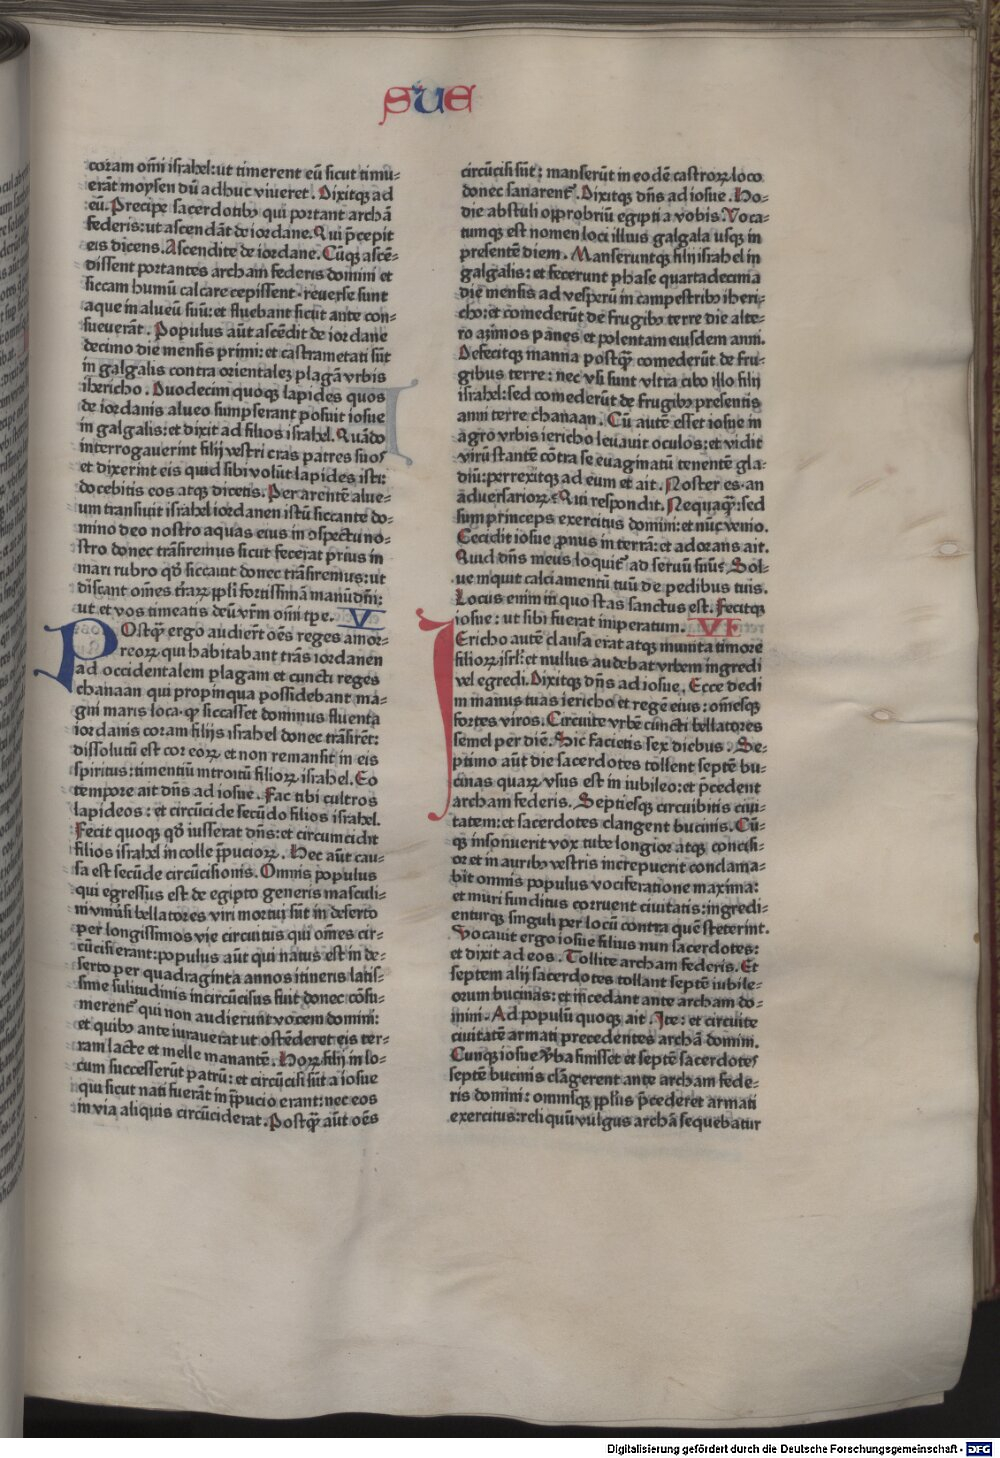 SUE
coram om̄i israhel: ut timerent eū sicut timu-
erāt moysen dū adhuc viveret. Dixitqꝫ ad
eū. Precipe sacerdotibꝰ qui portant archā
federis: ut ascendāt de iordane. Qui p̄cepit
eis dicens. Ascendite de iordane. Cūqꝫ ascē-
dissent portantes archam federis domini et
siccam humū calcare cepissent. reverse sunt
aque in alueū suū: et fluebant sicut ante con-
sueuerāt. Populus aūt ascēdit de iordane
decimo die mensis primi: et castrametati sūt
in galgalis contra orientalez plagā vrbis
ihericho. Duodecim quoqꝫ lapides quos
de iordanis alueo sumpserant posuit iosue
in galgalis: et dixit ad filios israhel. Quādo
interrogauerint filij vestri cras patres suos
et dixerint eis quid sibi volūt lapides isti:
docebitis eos atqꝫ dicetis. Per arentē alue-
um transiuit israhel iordanen istū siccante do-
mino deo nostro aquas eius in ɔspectu no-
stro donec trāsiremus sicut fecerat prius in
mari rubro qd̄ siccauit donec trāsiremus: ut
discant om̄es t̄raꝝ ppl̓i fortissimā manū dn̄i:
ut et vos timeatis deū vr̄m om̄i tp̄e. V
POstqꝫ̄ ergo audierūt oēs reges amor-
reoꝝ qui habitabant trās iordanen
ad occidentalem plagam et cuncti reges
chanaan qui propinqua possidebant ma-
gni maris loca. qꝫ siccasset dominus fluenta
iordanis coram filijs israhel donec trāsirēt:
dissolutū est cor eoꝝ et non remansit in eis
spiritus: timentiū introitū filioꝝ israhel. Eo
tempore ait dn̄s ad iosue. Fac tibi cultros
lapideos: et circūcide secūdo filios israhel.
Fecit quoqꝫ qd̄ iusserat dn̄s: et circumcidit
filios israhel in colle p̄pucioꝝ. Hec aūt cau-
sa est secūde circūcisionis. Omnis populus
qui egressus est de egipto generis masculi-
ni vniūsi bellatores viri mortui sūt in deserto
per longissimos vie circuitus qui om̄es cir-
cūcisi erant: populus aūt qui natus est in de-
serto per quadraginta annos itineris latis-
sime sulitudinis incircūcisus fuit donec cōsu-
merent᷑ qui non audierunt vocem domini:
et quibꝰ ante iurauerat ut ostēderet eis ter-
ram lacte et melle manantē. Hoꝝ filij in lo-
cum successerūt patrū: et circūcisi sūt a iosue
qui sicut nati fuerāt in p̄pucio erant: nec eos
in via aliquis circūciderat. Postqꝫ̄ aūt oēs
circūcisi sūt: manserūt in eodē castroꝝ loco
donec sanarent᷑. Dixitqꝫ dn̄s ad iosue. Ho-
die abstuli opprobriū egipti a vobis. Voca-
tumqꝫ est nomen loci illius galgala usqꝫ in
presentē diem. Manseruntqꝫ filij israhel in
galgalis: et fecerunt phase quartadecima
die mensis ad vesperū in campestribꝰ iheri-
cho: et comederūt de frugibꝰ terre die alte-
ro azimos panes et polentam eiusdem anni.
Defecitqꝫ manna postqꝫ̄ comederūt de fru-
gibus terre: nec vsi sunt vltra cibo illo filij
israhel: sed comederūt de frugibꝰ presentis
anni terre chanaan. Cū autē esset iosue in
agro vrbis iericho leuauit oculos: et vidit
virū stantē cōtra se euaginatū tenentē gla-
diū: perrexitqꝫ ad eum et ait. Noster es. an
aduersarioꝝ? Qui respondit. Nequaqꝫ̄: sed
sum princeps exercitus domini: et nūc venio.
Cecidit iosue pronus in terrā: et adorans ait.
Quid dn̄s meus loquit᷑ ad seruū suū? Sol-
ue inquit calciamentū tuū de pedibus tuis.
Locus enim in quo stas sanctus est. Fecitqꝫ
iosue: ut sibi fuerat imperatum. VI
IEricho autē clausa erat atqꝫ munita timore
filioꝝ isrl̓: et nullus audebat vrbem ingredi
vel egredi. Dixitqꝫ dn̄s ad iosue. Ecce dedi
in manus tuas iericho et regē eius: om̄esqꝫ
fortes viros. Circuite vrbē cūncti bellatores
semel per diē. Sic facietis sex diebus. Se-
ptimo aūt die sacerdotes tollent septē bu-
cinas quaꝝ vsus est in iubileo: et p̄cedent
archam federis. Septiesqꝫ circuibitis ciui-
tatem: et sacerdotes clangent bucinis. Cū-
qꝫ insonuerit vox tube longior atqꝫ concisi-
or et in auribꝰ vestris increpuerit conclama-
bit omnis populus vociferatione maxima:
et muri funditus corruent ciuitatis: ingredi-
enturqꝫ singuli per locū contra quē steterint.
Vocauit ergo iosue filius nun sacerdotes:
et dixit ad eos. Tollite archam federis. Et
septem alij sacerdotes tollant septē iubile-
orum bucinas: et incedant ante archam do-
mini. Ad populū quoqꝫ ait. Ite: et circuite
ciuitatē armati precedentes archā domini.
Cunqꝫ iosue v̄ba finisset et septē sacerdotes
septē bucinis clāgerent ante archam fede-
ris domini: omnisqꝫ ppl̓us p̄cederet armati
exercitus: reliquū vulgus archā sequebatur
Digitalisierung gefördert durch die Deutsche Forschungsgemeinschaft - DFG